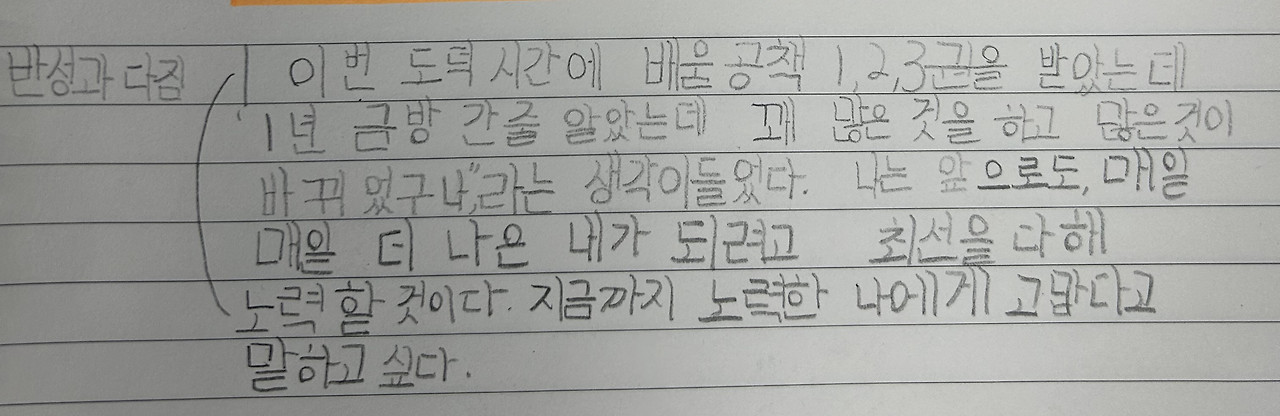 반성과 다짐 이번 도덕 시간에 배움 공책 1,2,3권을 받았는데
1년 금방 간줄 알았는데 꽤 많은 것을 하고 많은것이
바뀌었구나",라는 생각이들었다. 나는 앞으로도, 매일
매일 더 나은 내가 되려고 최선을 다해
노력할 것이다. 지금까지 노력한 나에게 고맙다고
말하고 싶다.